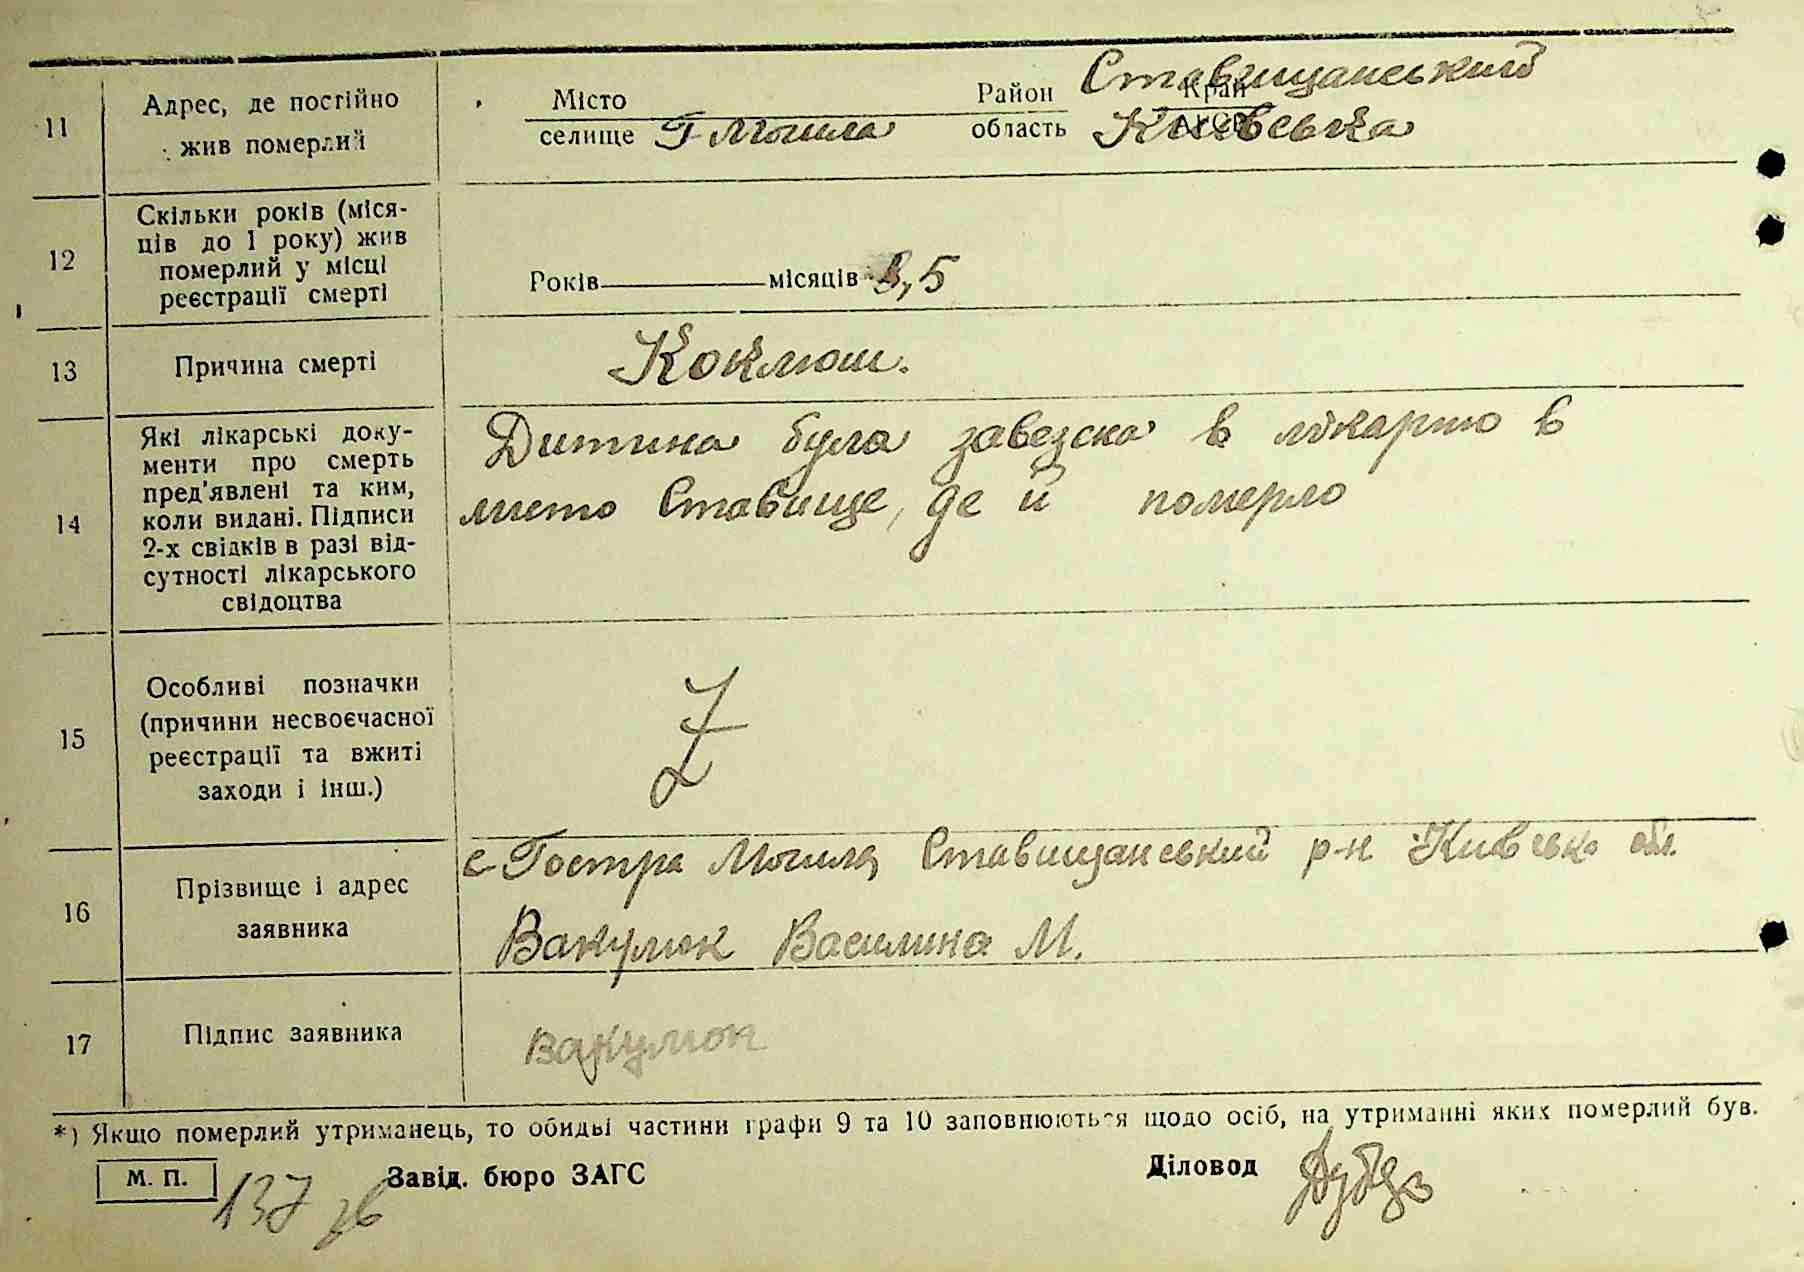 11
Адрес, де постійно
жив померлий
Місто
селище Г Могила
Район Ставищанський Край
область Київська АРСР
12
Скільки років (міся-
ців до 1 року) жив
померлий у місці
реєстрації смерті
Років місяців ,5
13
Причина смерті
Коклюш.
14
Які лікарські доку-
менти про смерть
пред'явлені та ким,
коли видані. Підписи
2-х свідків в разі від-
сутності лікарського
свідоцтва
Дитина була завезена в лікарню в
место Ставище, де й померло
15
Особливі позначки
(причини несвоєчасної
реєстрації та вжиті
заходи і інш.)
16
Прізвище і адрес
заявника
с-Гостра Могила Ставищанський р-н Київсько обл.
Вакулюк Василина М.
17
Підпис заявника
вакулюк
*) Якщо померлий утриманець, то обидві частини графи 9 та 10 заповнюються щодо осіб, на утриманні яких померлий був.
М. П.
137 зв
Завід. бюро ЗАГС
Діловод